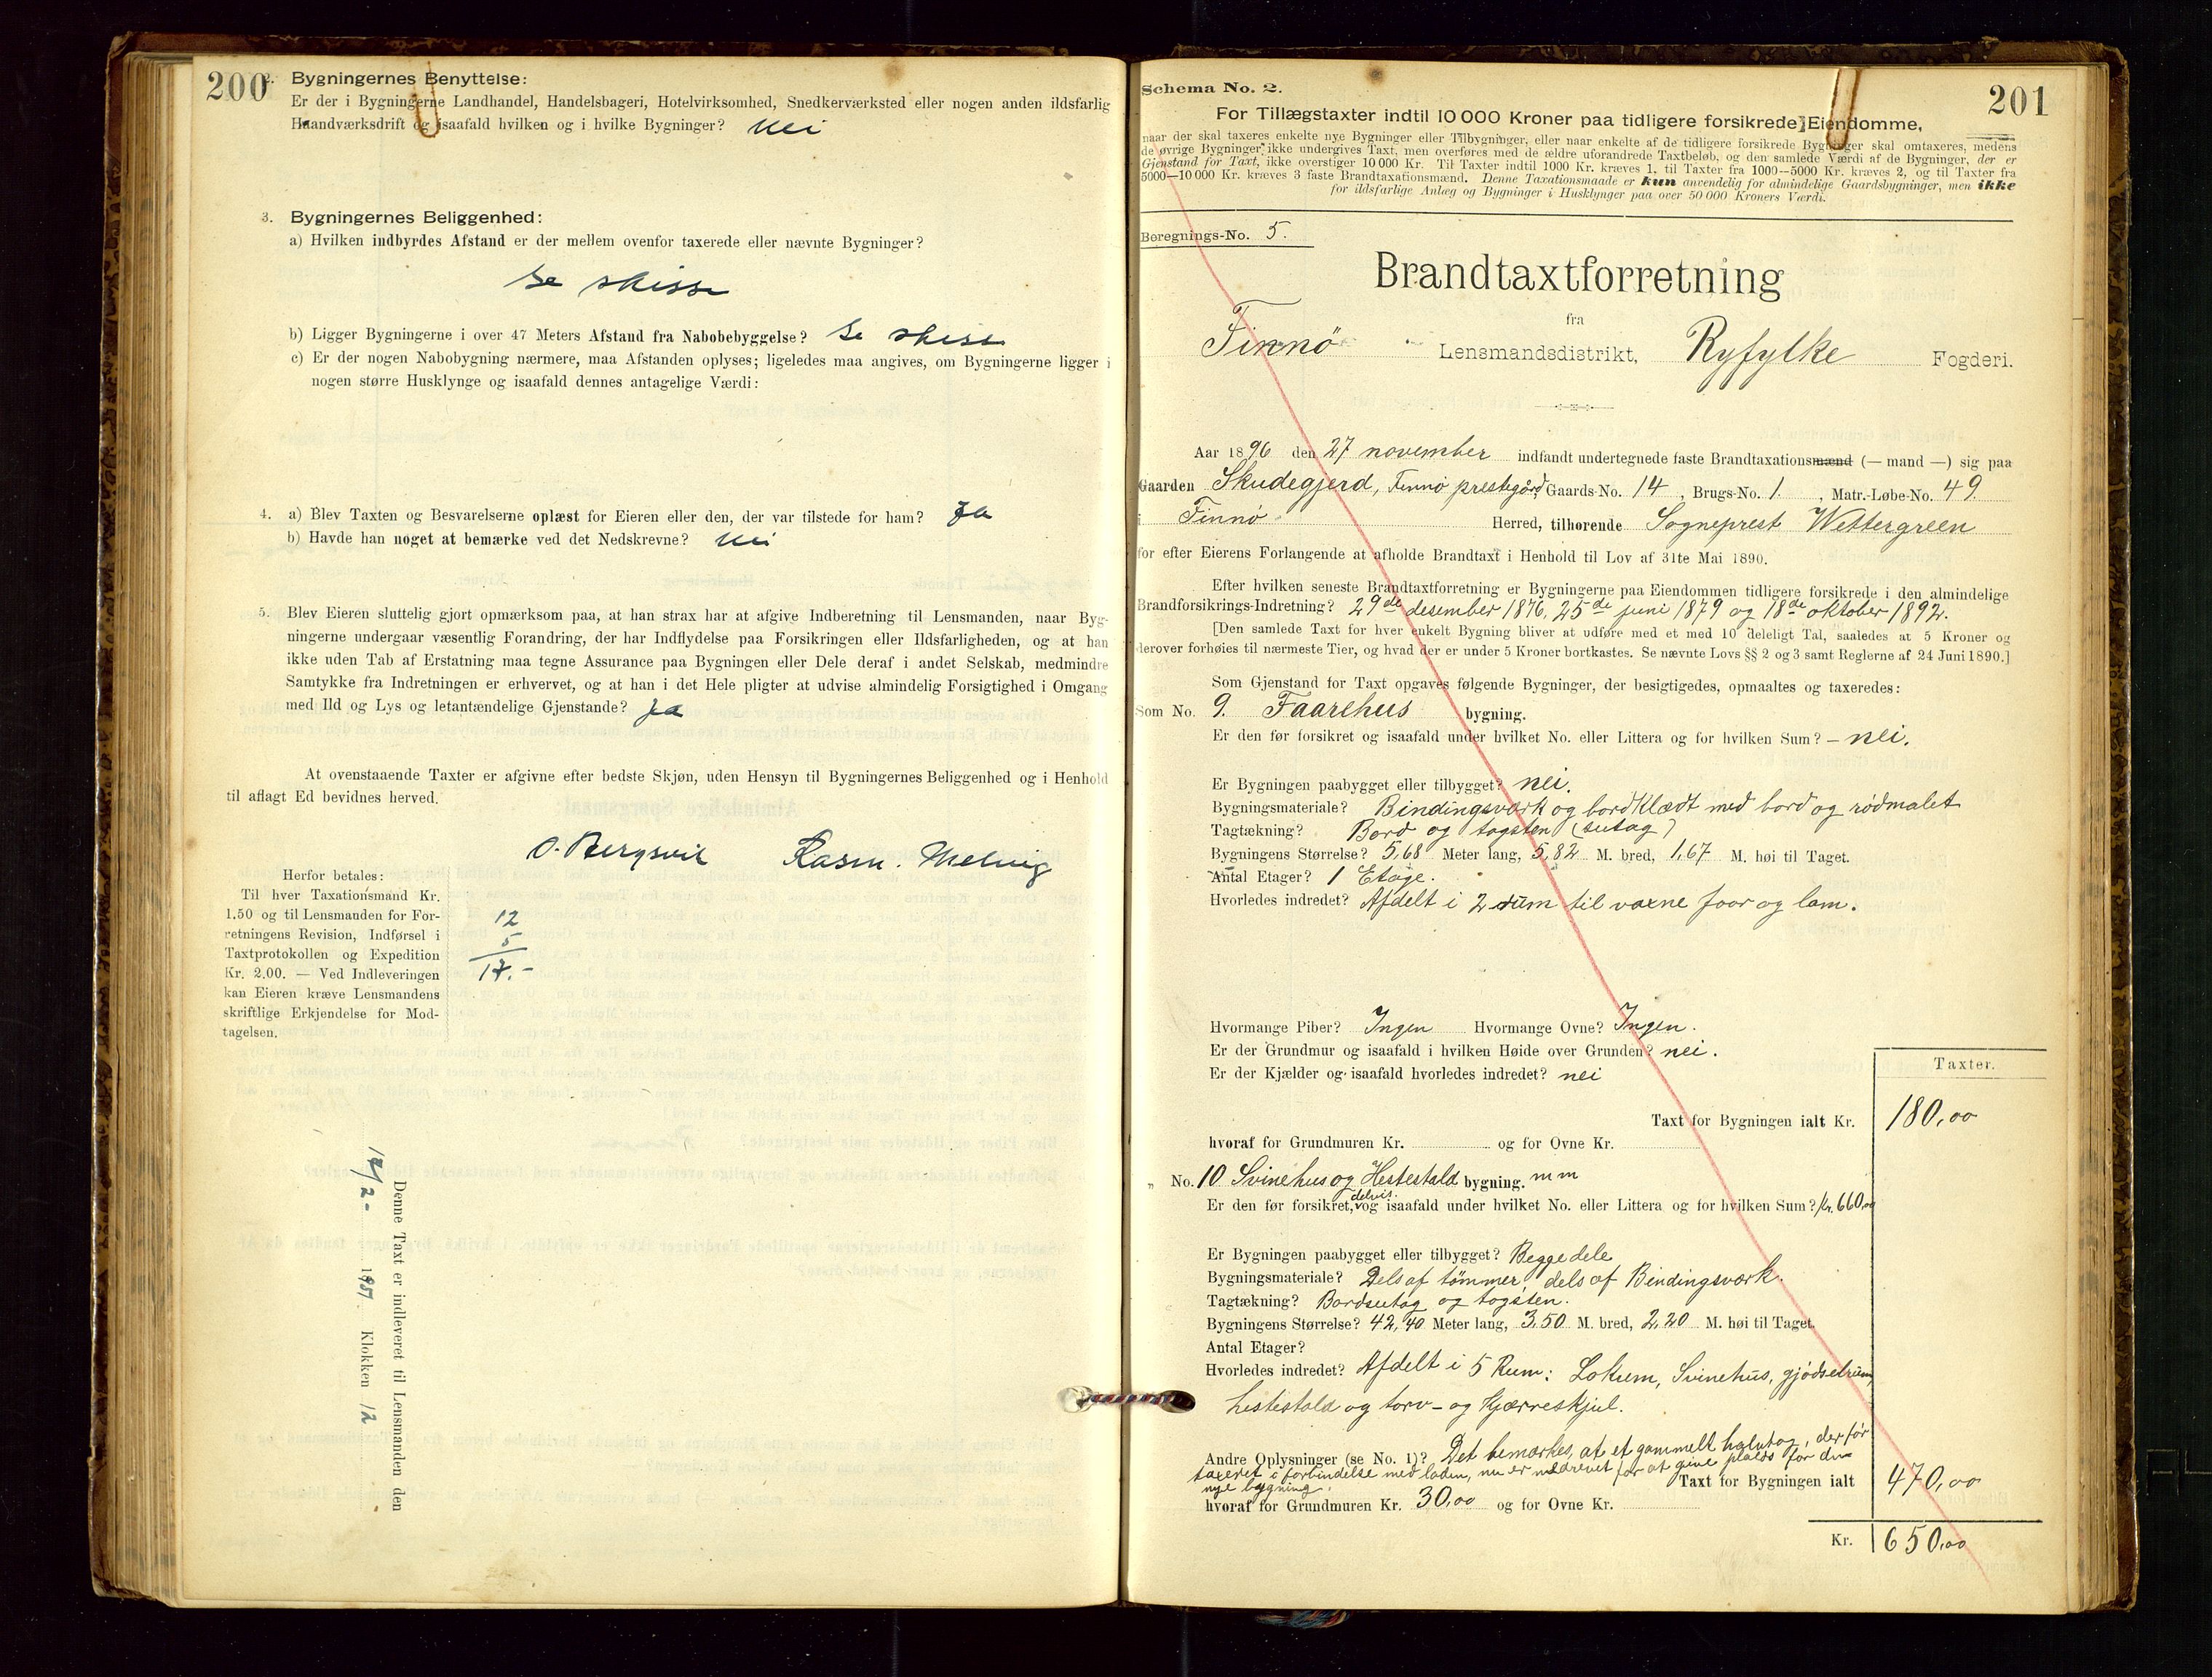 200
2. Bygningernes Benyttelse:
Er der i Bygningerne Landhandel, Handelsbageri, Hotelvirksomhed, Snedkerværksted eller nogen anden ildsfarlig
Haandværksdrift og isaafald hvilken og i hvilke Bygninger? Nei
3. Bygningernes Beliggenhed:
a) Hvilken indbyrdes Afstand er der mellem ovenfor taxerede eller nævnte Bygninger?
Se skisse
b) Ligger Bygningerne i over 47 Meters Afstand fra Nabobebyggelse? Se skisse
c) Er der nogen Nabobygning nærmere, maa Afstanden oplyses; ligeledes maa angives, om Bygningerne ligger i
nogen større Husklynge og isaafald dennes antagelige Værdi:
4. a) Blev Taxten og Besvarelserne oplæst for Eieren eller den, der var tilstede for ham? Ja
b) Havde han noget at bemærke ved det Nedskrevne? Nei
5. Blev Eieren sluttelig gjort opmærksom paa, at han strax har at afgive Indberetning til Lensmanden, naar Byg-
ningerne undergaar væsentlig Forandring, der har Indflydelse paa Forsikringen eller Ildsfarligheden, og at han
ikke uden Tab af Erstatning maa tegne Assurance paa Bygningen eller Dele deraf i andet Selskab, medmindre
Samtykke fra Indretningen er erhvervet, og at han i det Hele pligter at udvise almindelig Forsigtighed i Omgang
med Ild og Lys og letantændelige Gjenstande? Ja
At ovenstaaende Taxter er afgivne efter bedste Skjøn, uden Hensyn til Bygningernes Beliggenhed og i Henhold
til aflagt Ed bevidnes herved.
O. Bergsvik Rasm. Melvig
Herfor betales:
Til hver Taxationsmand Kr.
1.50 og til Lensmanden for For-
retningens Revision, Indførsel i
Taxtprotokollen og Expedition
Kr. 2.00. — Ved Indleveringen
kan Eieren kræve Lensmandens
skriftlige Erkjendelse for Mod-
tagelsen.
12
5
17.-
Denne Taxt er indleveret til Lensmanden den
12/2- 1907 Klokken 12
201
Schema No. 2.
For Tillægstaxter indtil 10 000 Kroner paa tidligere forsikrede Eiendomme,
naar der skal taxeres enkelte nye Bygninger eller Tilbygninger, eller naar enkelte af de tidligere forsikrede Bygninger skal omtaxeres, medens
de øvrige Bygninger ikke undergives Taxt, men overføres med de ældre uforandrede Taxtbeløb, og den samlede Værdi af de Bygninger, der er
Gjenstand for Taxt, ikke overstiger 10 000 Kr. Til Taxter indtil 1000 Kr. kræves 1, til Taxter fra 1000—5000 Kr. kræves 2, og til Taxter fra
5000—10 000 Kr. kræves 3 faste Brandtaxationsmænd. Denne Taxationsmaade er kun anvendelig for almindelige Gaardsbygninger, men ikke
for ildsfarlige Anlæg og Bygninger i Husklynger paa over 50 000 Kroners Værdi.
Beregnings-No. 5.
Brandtaxtforretning
fra
Finnø Lensmandsdistrikt, Ryfylke Fogderi.
Aar 1896 den 27 november indfandt undertegnede faste Brandtaxationsmænd (— mand —) sig paa
Gaarden Skudegjerd, Finnø prestegård Gaards-No. 14, Brugs-No. 1., Matr.-Løbe-No. 49.
i Finnø Herred, tilhørende Sogneprest Wettergreen
for efter Eierens Forlangende at afholde Brandtaxt i Henhold til Lov af 31te Mai 1890.
Efter hvilken seneste Brandtaxtforretning er Bygningerne paa Eiendommen tidligere forsikrede i den almindelige
Brandforsikrings-Indretning? 29de desember 1876, 25de juni 1879 og 18de oktober 1892.
[Den samlede Taxt for hver enkelt Bygning bliver at udføre med et med 10 deleligt Tal, saaledes at 5 Kroner og
derover forhøies til nærmeste Tier, og hvad der er under 5 Kroner bortkastes. Se nævnte Lovs §§ 2 og 3 samt Reglerne af 24 Juni 1890.]
Som Gjenstand for Taxt opgaves følgende Bygninger, der besigtigedes, opmaaltes og taxeredes:
Som No. 9. Faarehus bygning.
Er den før forsikret og isaafald under hvilket No. eller Littera og for hvilken Sum? – nei.
Er Bygningen paabygget eller tilbygget? nei.
Bygningsmateriale? Bindingsværk og bordklædt med bord og rødmalet
Tagtækning? Bord og tagsten (sutag)
Bygningens Størrelse? 5,68 Meter lang, 5,82 M. bred, 1,67 M. høi til Taget.
Antal Etager? 1 Etage.
Hvorledes indredet? Afdelt i 2 rum til vaxne faar og lam.
Hvormange Piber? Ingen Hvormange Ovne? Ingen.
Er der Grundmur og isaafald i hvilken Høide over Grunden? nei.
Er der Kjælder og isaafald hvorledes indredet? nei
Taxter.
Taxt for Bygningen ialt Kr. 180,00
hvoraf for Grundmuren Kr. og for Ovne Kr.
" No. 10 Svinehus og Hestestald bygning. m m
Er den før forsikret, delvis. og isaafald under hvilket No. eller Littera og for hvilken Sum? Kr. 660,00
Er Bygningen paabygget eller tilbygget? Begge dele
Bygningsmateriale? Dels af tømmer dels af Bindingsværk.
Tagtækning? Bordsutag og tagsten.
Bygningens Størrelse? 42,40 Meter lang, 3,50 M. bred, 2,20 M. høi til Taget.
Antal Etager?
Hvorledes indredet? Afdelt i 5 Rum: Lokum, Svinehus, gjødselrum,
hestestald og torv- og Kjærreskjul.
Andre Oplysninger (se No. 1)? Det bemærkes, at et gammelt halvtag, der før
taxeret i forbindelse med laden, nu er nedrevet for at give plads for den
nye bygning. Taxt for Bygningen ialt 470,00
hvoraf for Grundmuren Kr. 30,00 og for Ovne Kr.
Kr. 650,00